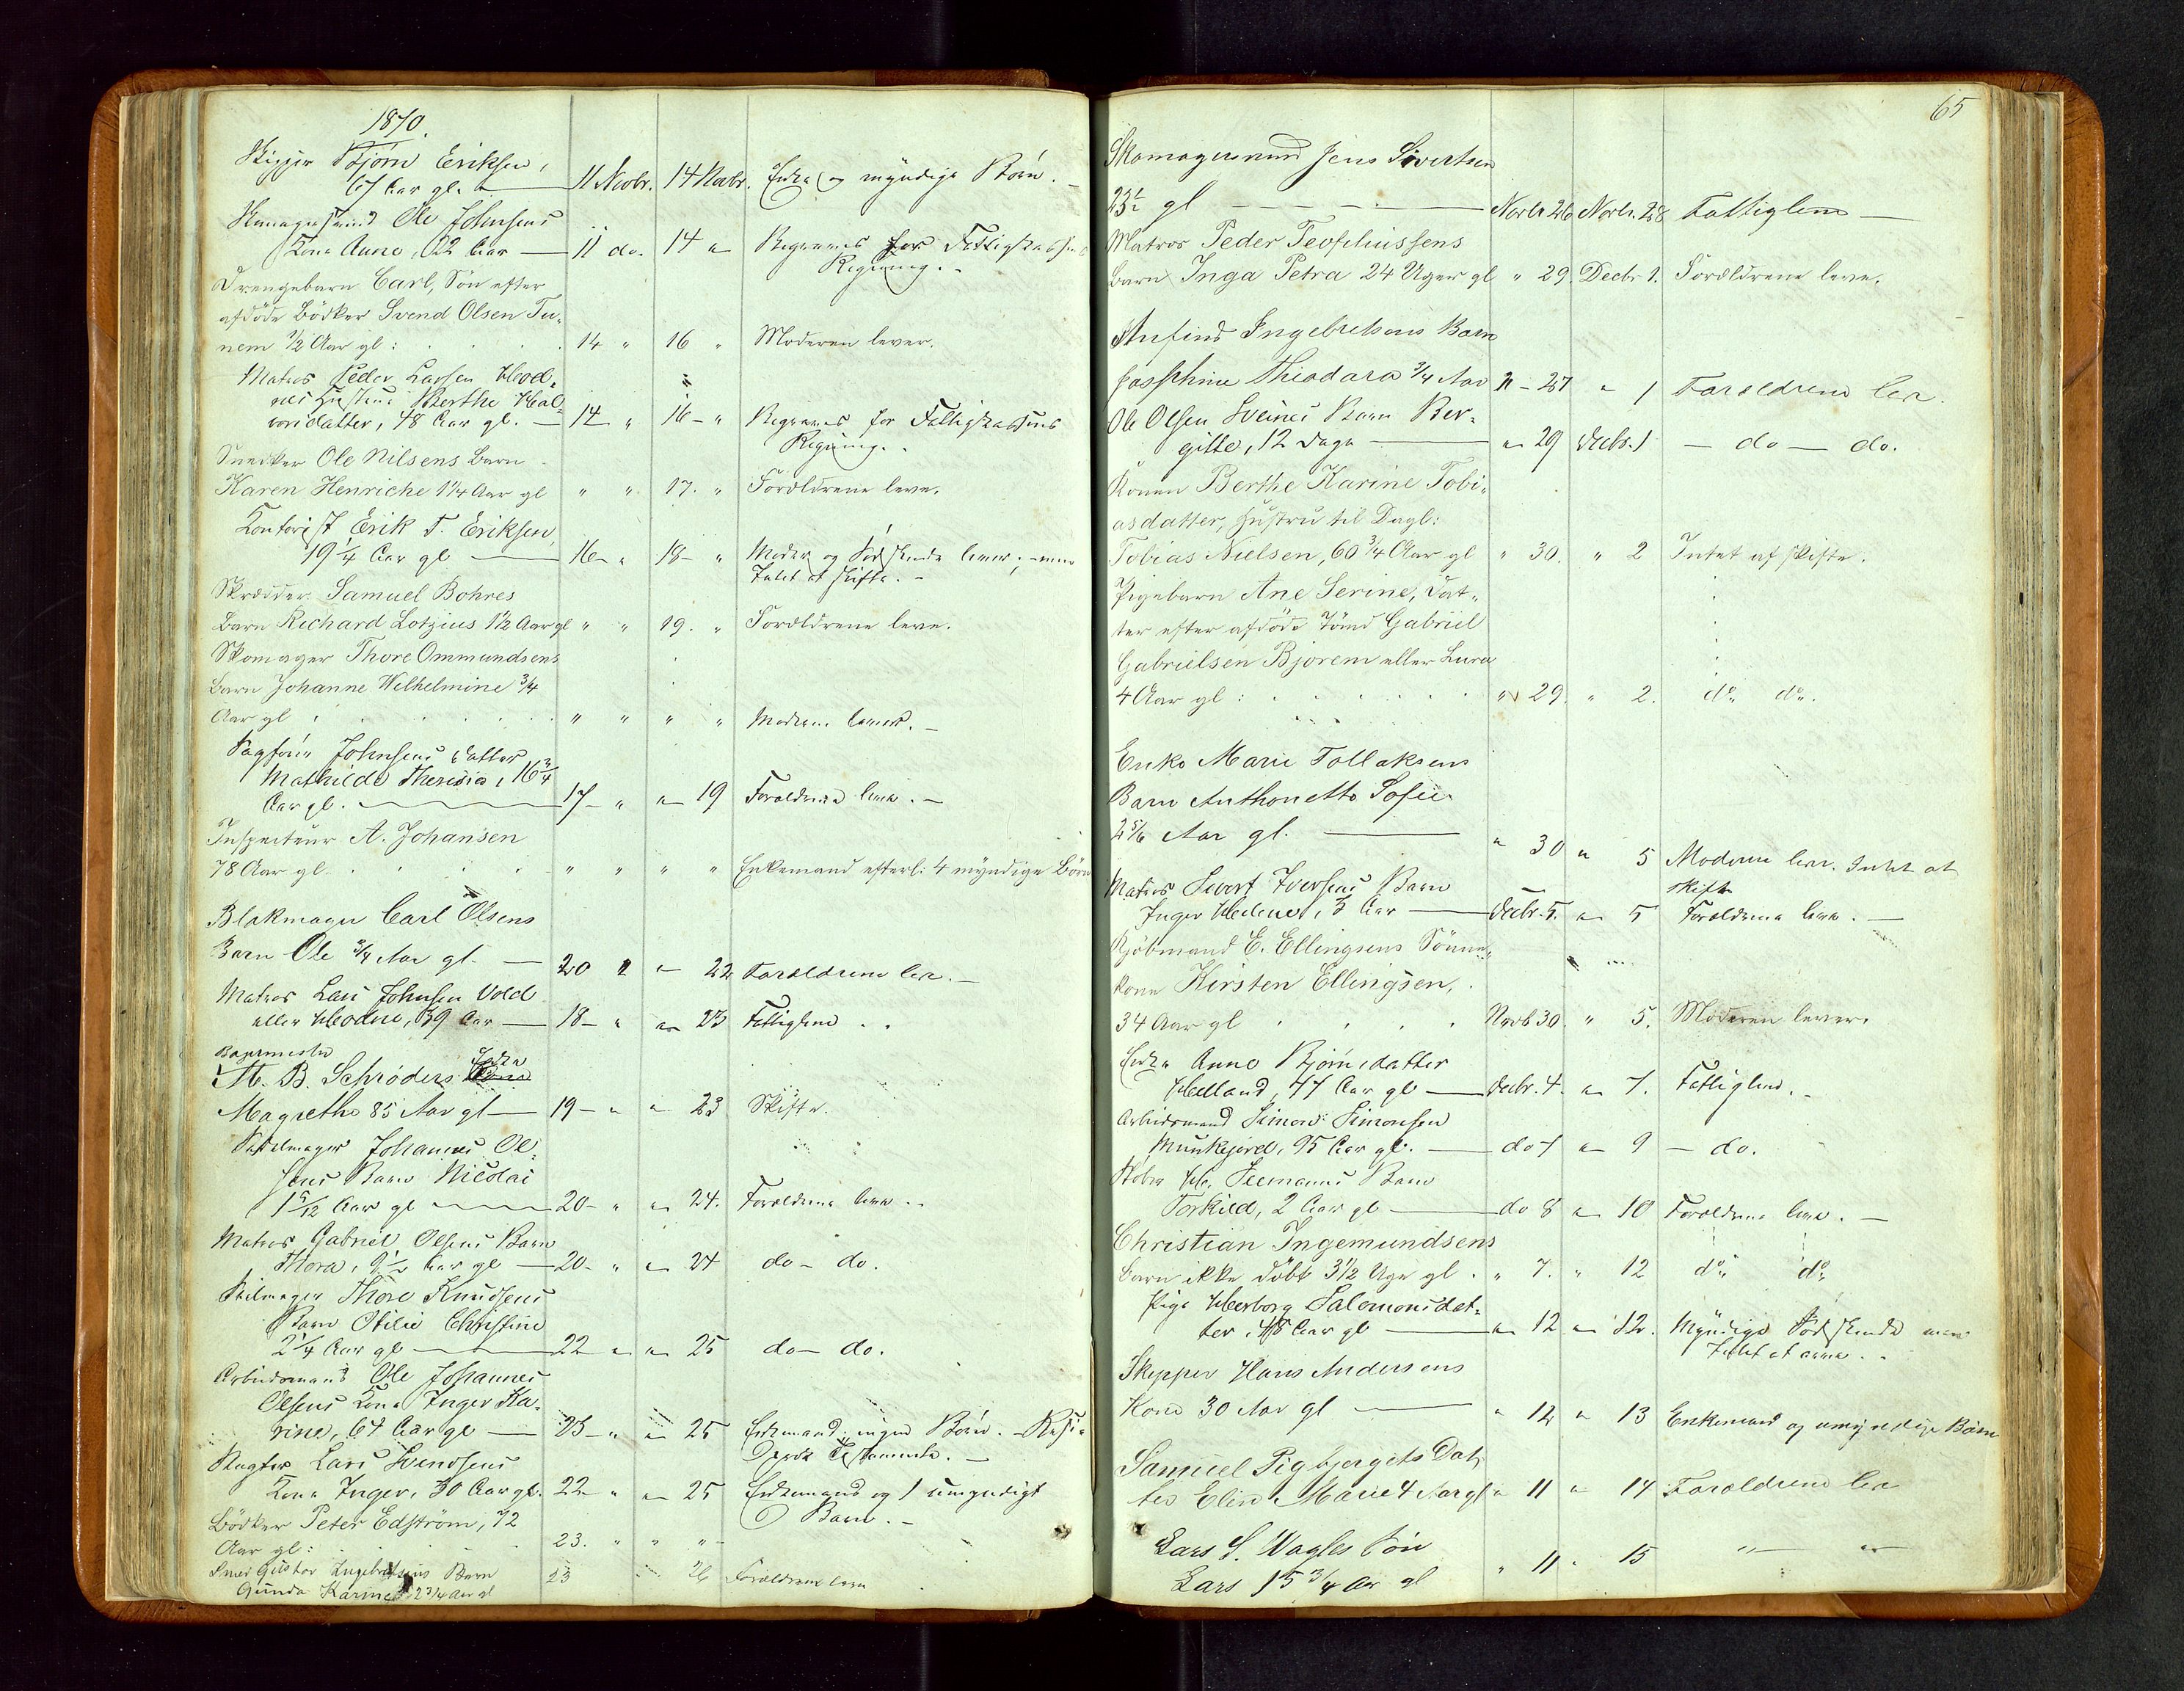 1870.
Skipper Bjørn Eriksen,
67 Aar gl. — 11 Novbr. 14 Novbr. Enke og myndige Børn. —
Ole Johnsens
Kone Anne, 22 Aar — 11 do. 14 " Begraves for Fattigkassens
Regning. -
Drengebarn Carl, Søn efter
afdøde Bödker Svend Olsen Tu-
nem 1/2 Aar gl: 14 " 16 " Moderen lever.
Matros Peder Larsen Hod-
nes Hustru Berthe Hal-
vorsdatter, 48 Aar gl. — 14 " 16 - " Begraves for Fattigkassens
Regning. .
Snedker Ole Nilsens Barn
Karen Henriche 1 1/4 Aar gl " " 17. " Forældrene leve.
Kontorist Erik T. Eriksen,
19 1/4 Aar gl — 16 - " 18 - " Moder og Sødskende lever, - men
Intet at skifte. -
Skrædder Samuel Bohres
Barn Richard Lotzius 1 1/2 Aar gl " " 19. " Forældrene leve.
Skomager Thore Ommundsens
Barn Johanne Wilhelmine 3/4
Aar gl " " " " Moderen lever. —
Johnsens Datter
Mathilde Theresia, 16 3/4
Aar gl. — 17 - " " 19 Forældrene leve. —
Inspecteur A. Johansen
78 Aar gl. " " " " Enkemand efterl: 4 myndige Börn
Blokmager Carl Olsens
Barn Ole 3/4 Aar gl. — 20 " " 22 Forældrene lever. —
Matros Lars Johnsen Vold
eller Hodne, 39 Aar — 18 - " " 23 Fattiglem . .
Bagermester
M. B. Schröders Enke
Magrethe 85 Aar gl — 19 - " " 23 Skifte.
Johannes Ol-
sens Barn Nicolai
1 5/12 Aar gl — 20 - " " 24. Forældrene leve. .
Matros Gabriel Olsens Barn
Thora, 9 1/2 Aar gl — 20 - " " 24 do - do.
Seilmager Thore Knudsens
Barn Otilie Christine
2 1/4 Aar gl — 22 " " 25 do - do.
Arbeidsmand Ole Johannes
Olsens Kone Inger Ka-
rine, 67 Aar gl — 23 - " " 25 Enkemand, ingen Børn. -
Testamente. —
Slagter Lars Svendsens
Kone Inger, 30 Aar gl. 22 - " " 25 Enkemand og 1 umyndigt
Barn. —
Bödker Peter Edström, 72
Aar gl: 23. " " "
Smed Gustav Ingebretsens Barn 23 26 Forældrene leve
Gunda Karine 2 3/4 Aar gl

65
Skomagersvend Jens Sivertsen
23 1/2 gl — Novbr 26 Novbr. 28 Fattiglem —
Matros Peder Teofeliussens
Barn Inga Petra 24 Uger gl " 29. Decbr 1. Forældrene leve.
Anfind Ingebretsens Barn
Josephine Theodora 3/4 Aar " - 27 " 1 Forældrene lever.
Ole Olsen Sveines Barn Ber-
gitte, 12 Dage — " 29 Decbr. 1 — do — do.
Konen Berthe Karine Tobi-
asdatter, Hustru til Dagl:
Tobias Nielsen, 60 3/4 Aar gl " 30. " 2 Intet af skifte.
Pigebarn Ane Serine, Dat-
ter efter afdøde Tömd Gabriel
Gabrielsen Bjorem eller Lura
4 Aar gl: " 29. " 2. do. do.
Enke Marie Tollaksens
Barn Anthonette Sofie
2 5/6 Aar gl. — " 30 " 5 Moderen lever. Intet at
skifte
Matros Sivert Iversens Barn
Inger Helene, 3 Aar — Decbr. 5. " 5 Forældrene leve. —
Kjöbmand E. Ellingsens Sønne-
kone Kirsten Ellingsen,
34 Aar gl Novb 30. " 5. Moderen lever.
Enke Anne Bjørnsdatter
Helland, 77 Aar gl — Decbr. 4. " 7. Fattiglem. -
Arbeidsmand Simon Simonsen
Munkejord, 95 Aar gl. — do 7 " 9 — do.
Barn
Torkild, 2 Aar gl — do 8 " 10 Forældrene leve. —
Christian Ingemundsens
Barn ikke döbt 3 1/2 Uge gl. " 7. " 12 do. do.
Pige Herborg Salomonsdat-
ter, 48 Aar gl — " 12 " 12. Myndige Sødskende men
Intet at arve. .
Skipper Hans Andersens
Kone 30 Aar gl — " 12 " 13 Enkemand og umyndige Børn
Samuel Pigbjergets Dat-
ter Elin Marie 4 Aar gl " 11 " 14 Forældrene lever
Lars S. Wagles Søn
Lars 15 3/4 Aar gl " 11 " 15 " "